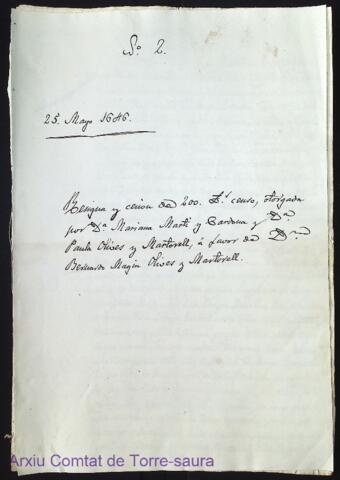 Nº 2.
25. Mayo 1646.
Resigna y cesion de 200. £ˢ censo, otorgada
por Dª Mariana Martí y Cardona y Dª
Paula Olives y Martorell, à favor de Dⁿ
Bernardo Magin Olives y Martorell.
Arxiu Comtat de Torre-saura